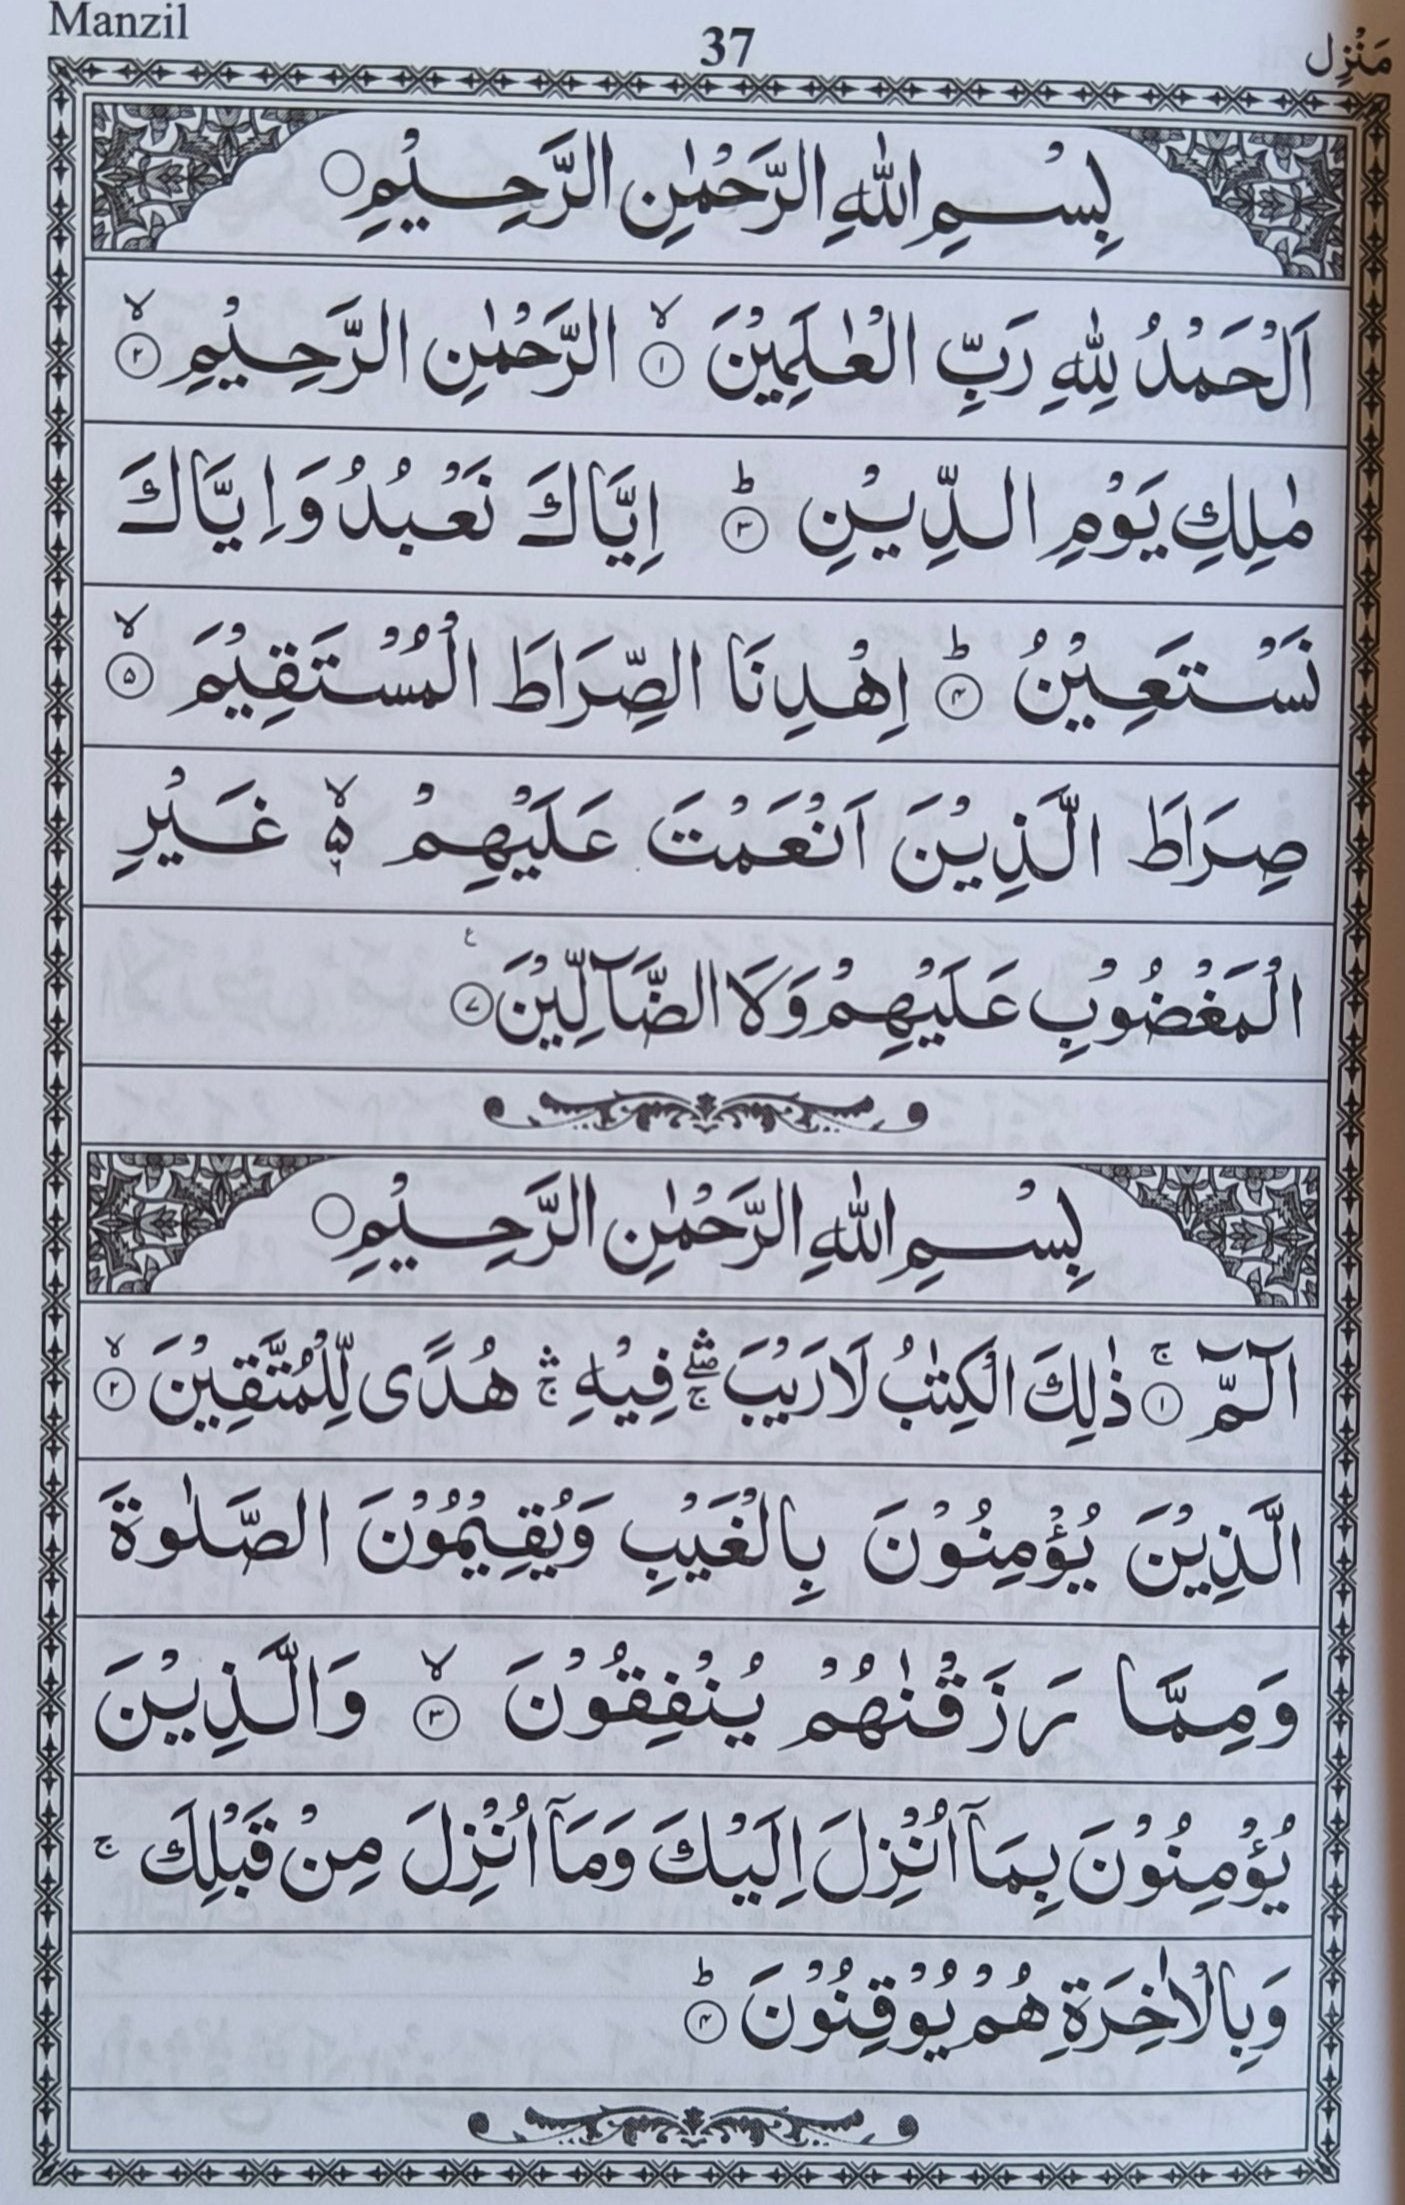 Manzil 37 مَنْزِل
بِسْمِ اللّٰهِ الرَّحْمٰنِ الرَّحِيْمِ ۝
اَلْحَمْدُ لِلّٰهِ رَبِّ الْعٰلَمِيْنَ ۙ﴿۱﴾ الرَّحْمٰنِ الرَّحِيْمِ ۙ﴿۲﴾
مٰلِكِ يَوْمِ الدِّيْنِ ؕ﴿۳﴾ اِيَّاكَ نَعْبُدُ وَ اِيَّاكَ
نَسْتَعِيْنُ ؕ﴿۴﴾ اِهْدِنَا الصِّرَاطَ الْمُسْتَقِيْمَ ۙ﴿۵﴾
صِرَاطَ الَّذِيْنَ اَنْعَمْتَ عَلَيْهِمْ ۙ۬ۥ غَيْرِ
الْمَغْضُوْبِ عَلَيْهِمْ وَلَا الضَّآلِّيْنَ ﴿۷﴾ ع
بِسْمِ اللّٰهِ الرَّحْمٰنِ الرَّحِيْمِ ۝
الٓمّٓ ۚ﴿۱﴾ ذٰلِكَ الْكِتٰبُ لَا رَيْبَ ۛۖۚ فِيْهِ ۛۚ هُدًى لِّلْمُتَّقِيْنَ ۙ﴿۲﴾
الَّذِيْنَ يُؤْمِنُوْنَ بِالْغَيْبِ وَيُقِيْمُوْنَ الصَّلٰوةَ
وَمِمَّا رَزَقْنٰهُمْ يُنْفِقُوْنَ ۙ﴿۳﴾ وَالَّذِيْنَ
يُؤْمِنُوْنَ بِمَآ اُنْزِلَ اِلَيْكَ وَمَآ اُنْزِلَ مِنْ قَبْلِكَ ۚ
وَبِالْاٰخِرَةِ هُمْ يُوْقِنُوْنَ ؕ﴿۴﴾